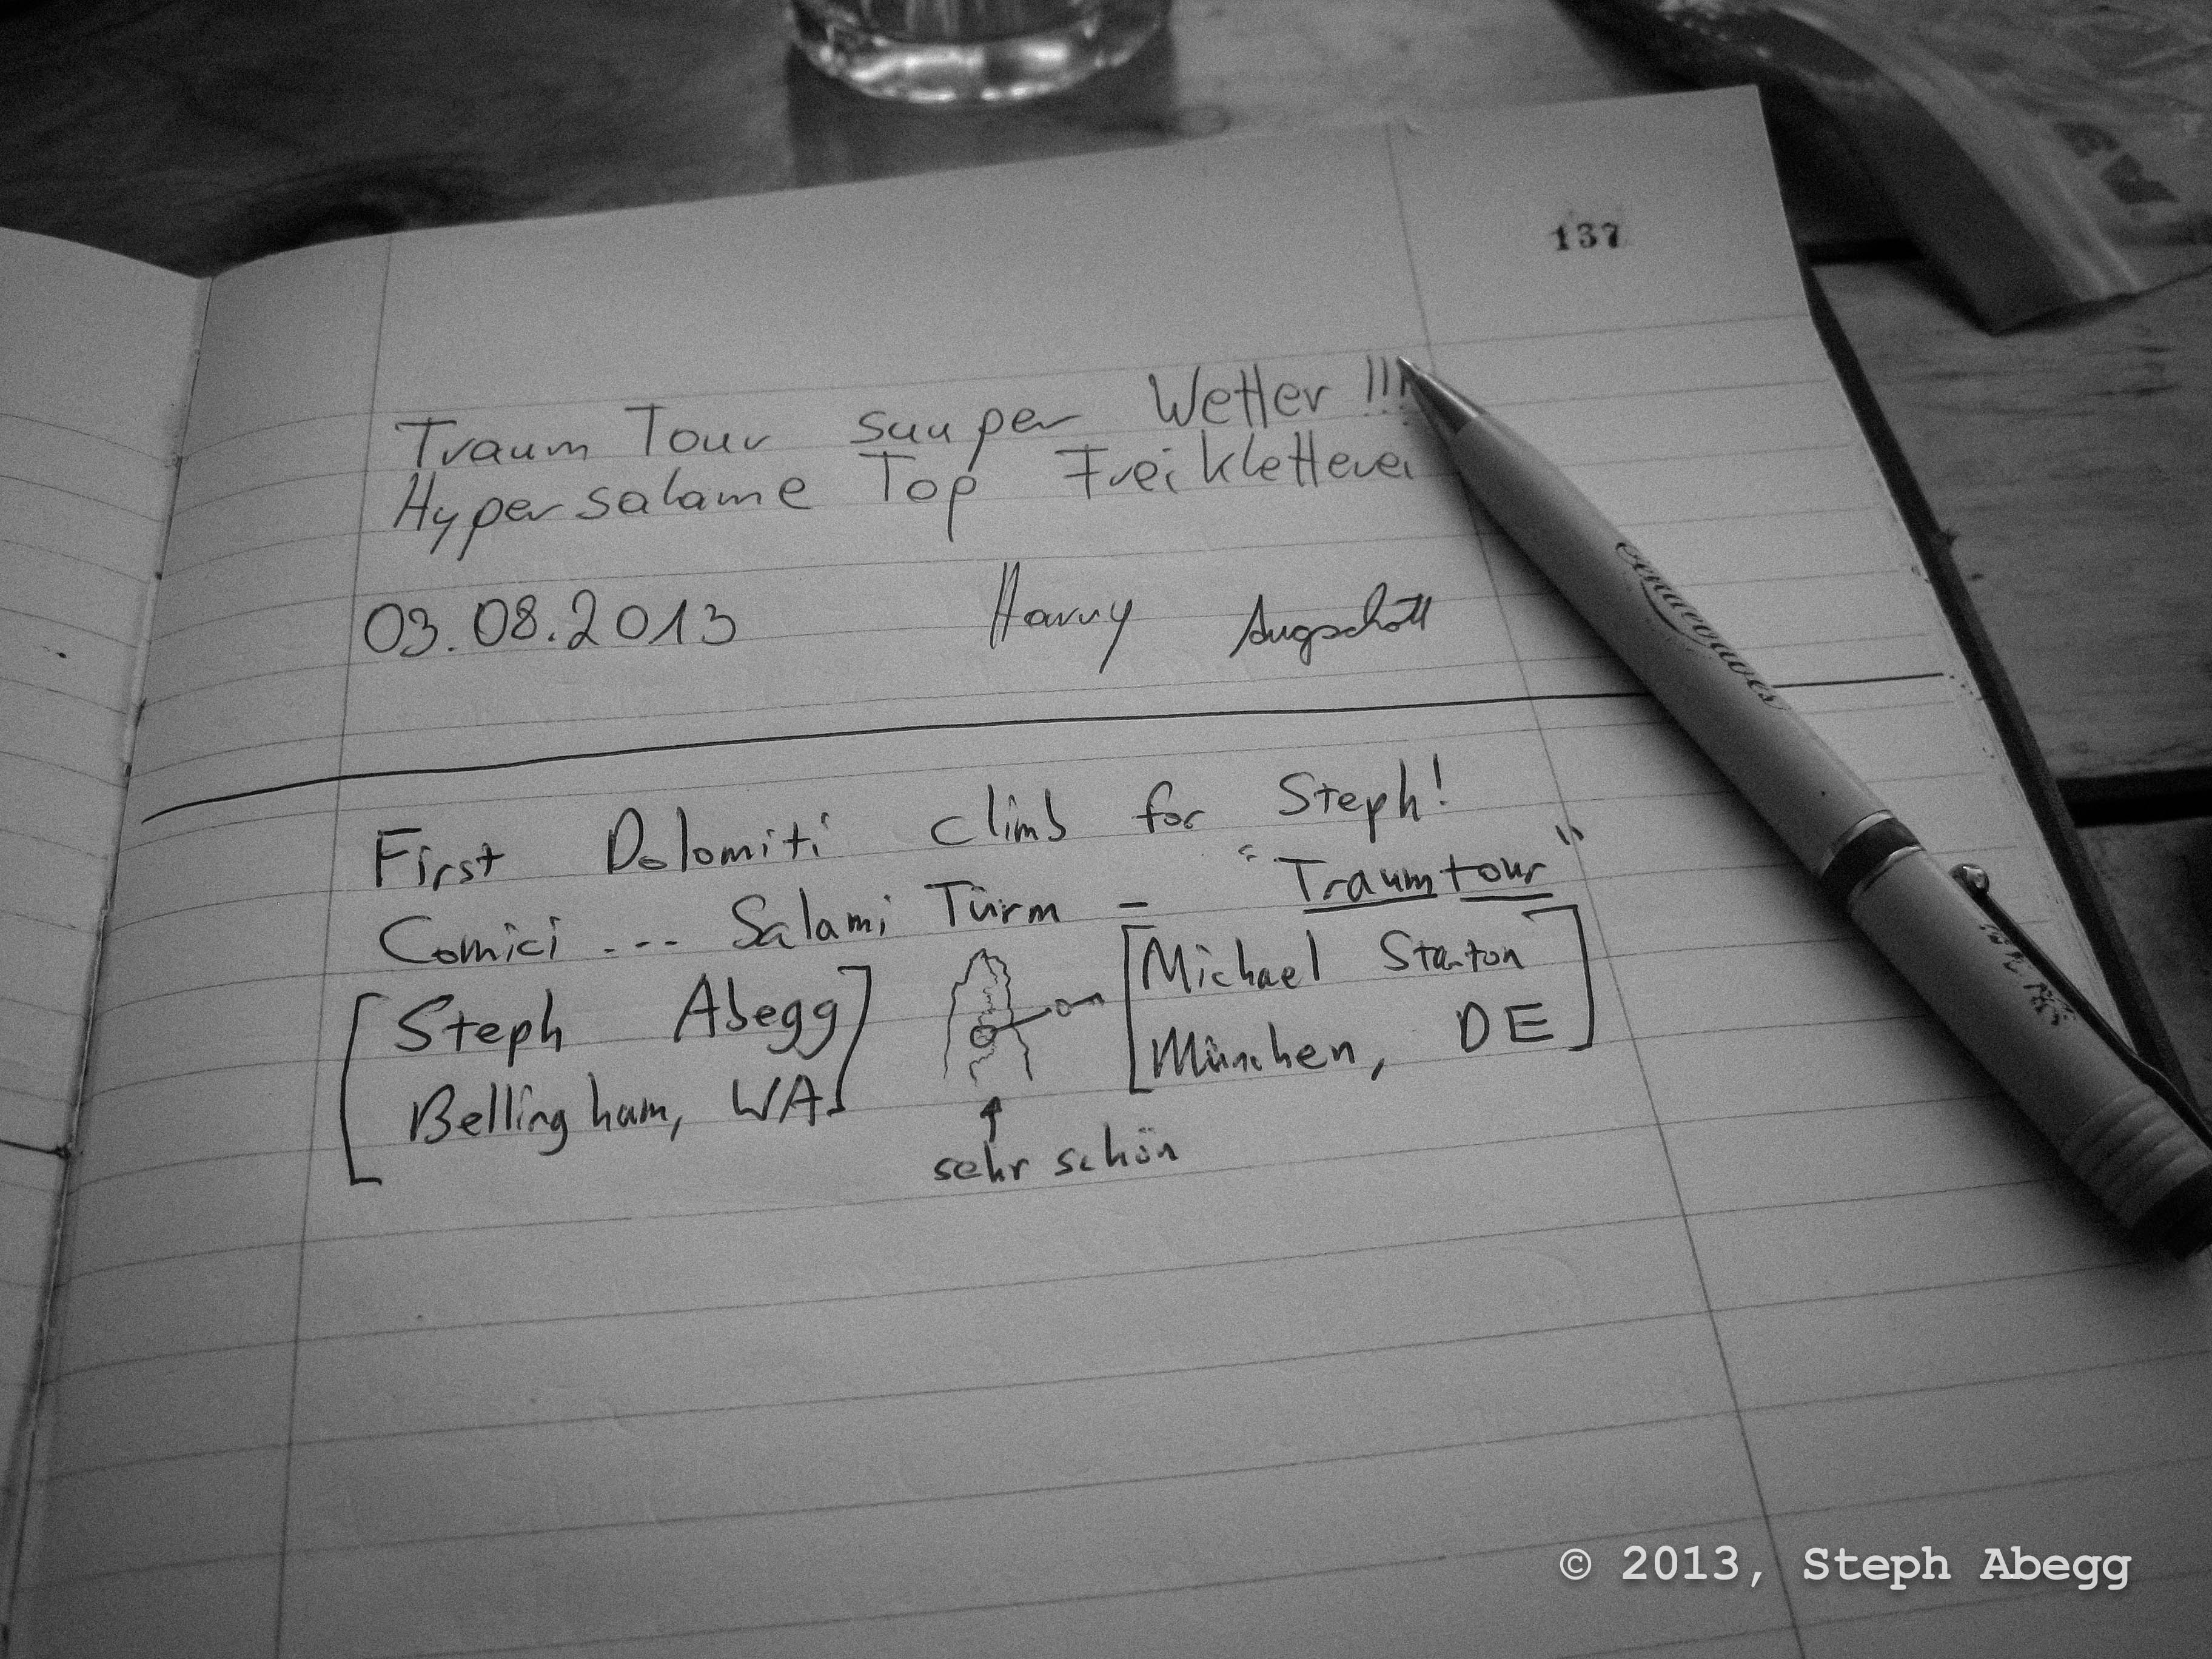 137
Traum Tour suuper Wetter !!!
Hypersalame Top Freikletterei
03.08.2013 Harry
First Dolomiti climb for Steph!
Comici ... Salami Türm - "Traumtour"
[Steph Abegg] [Michael Stanton
Bellingham, WA] München, DE]
sehr schön
© 2013, Steph Abegg